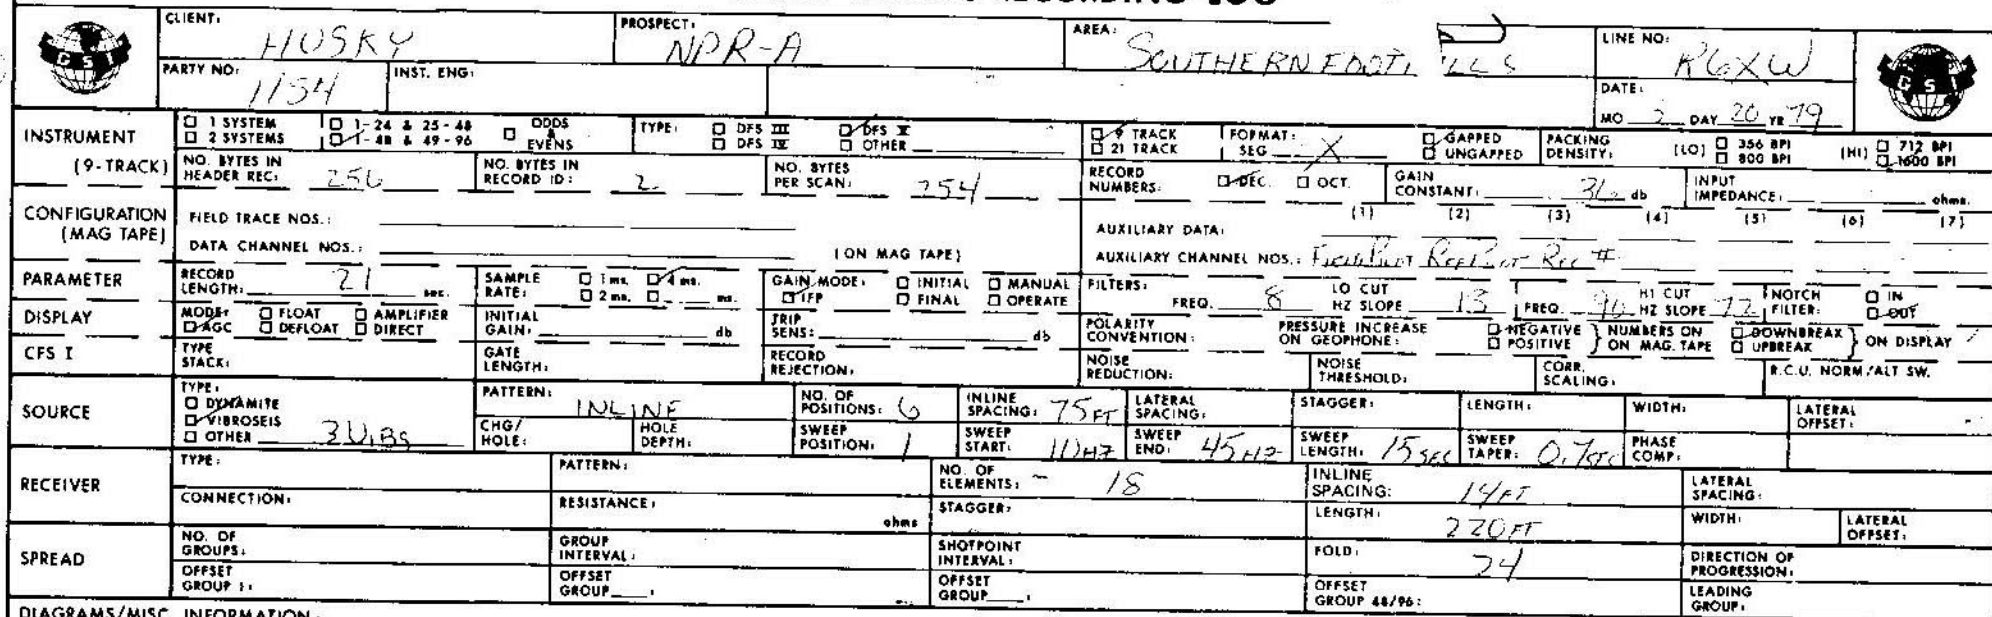 RECORDING LOG
GSI CLIENT: HUSKY PROSPECT: NPR-A AREA: SOUTHERN FOOTHILLS LINE NO: R6XW GSI
PARTY NO: 1154 INST. ENG: DATE: MO 2 DAY 20 YR 79
INSTRUMENT (9-TRACK) □ 1 SYSTEM □ 2 SYSTEMS □ 1-24 & 25-48 □ 1-48 & 49-96 □ ODDS & EVENS TYPE: □ DFS III □ DFS IV □ DFS V □ OTHER □ 9 TRACK □ 21 TRACK FORMAT: SEG X □ GAPPED □ UNGAPPED PACKING DENSITY: (LO) □ 356 BPI □ 800 BPI (HI) □ 712 BPI □ 1600 BPI
NO. BYTES IN HEADER REC: 256 NO. BYTES IN RECORD ID: 2 NO. BYTES PER SCAN: 254 RECORD NUMBERS: □ DEC. □ OCT. GAIN CONSTANT: 36 db INPUT IMPEDANCE: ohms.
CONFIGURATION (MAG TAPE) FIELD TRACE NOS.: AUXILIARY DATA: (1) (2) (3) (4) (5) (6) (7)
DATA CHANNEL NOS.: (ON MAG TAPE) AUXILIARY CHANNEL NOS.: Rec #
PARAMETER RECORD LENGTH: 21 sec. SAMPLE RATE: □ 1 ms. □ 2 ms. □ 4 ms. □ ms. GAIN MODE: □ IFP □ INITIAL □ FINAL □ MANUAL □ OPERATE FILTERS: FREQ. 8 LO CUT HZ SLOPE 13 FREQ. 90 HI CUT HZ SLOPE 72 NOTCH FILTER: □ IN □ OUT
DISPLAY MODE: □ AGC □ FLOAT □ DEFLOAT □ AMPLIFIER □ DIRECT INITIAL GAIN: db TRIP SENS: db POLARITY CONVENTION: PRESSURE INCREASE ON GEOPHONE: □ NEGATIVE □ POSITIVE } NUMBERS ON MAG. TAPE □ DOWNBREAK □ UPBREAK } ON DISPLAY
CFS I TYPE STACK: GATE LENGTH: RECORD REJECTION: NOISE REDUCTION: NOISE THRESHOLD: CORR. SCALING: R.C.U. NORM/ALT SW.
SOURCE TYPE: □ DYNAMITE □ VIBROSEIS □ OTHER 3 VIBS PATTERN: INLINE NO. OF POSITIONS: 6 INLINE SPACING: 75 FT LATERAL SPACING: STAGGER: LENGTH: WIDTH: LATERAL OFFSET:
CHG/HOLE: HOLE DEPTH: SWEEP POSITION: 1 SWEEP START: 10 HZ SWEEP END: 45 HZ SWEEP LENGTH: 15 SEC SWEEP TAPER: 0.7 SEC PHASE COMP:
RECEIVER TYPE: PATTERN: NO. OF ELEMENTS: 18 INLINE SPACING: 14 FT LATERAL SPACING:
CONNECTION: RESISTANCE: ohms STAGGER: LENGTH: 220 FT WIDTH: LATERAL OFFSET:
SPREAD NO. OF GROUPS: GROUP INTERVAL: SHOTPOINT INTERVAL: FOLD: 24 DIRECTION OF PROGRESSION:
OFFSET GROUP 1: OFFSET GROUP : OFFSET GROUP : OFFSET GROUP 48/96: LEADING GROUP:
DIAGRAMS/MISC. INFORMATION: